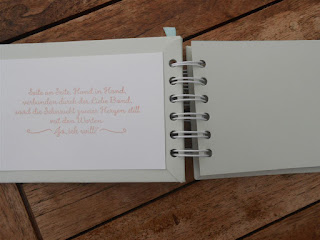 Seite an Seite, Hand in Hand,
verbunden durch der Liebe Band,
wird die Sehnsucht zweier Herzen still
mit den Worten
"Ja, ich will!"